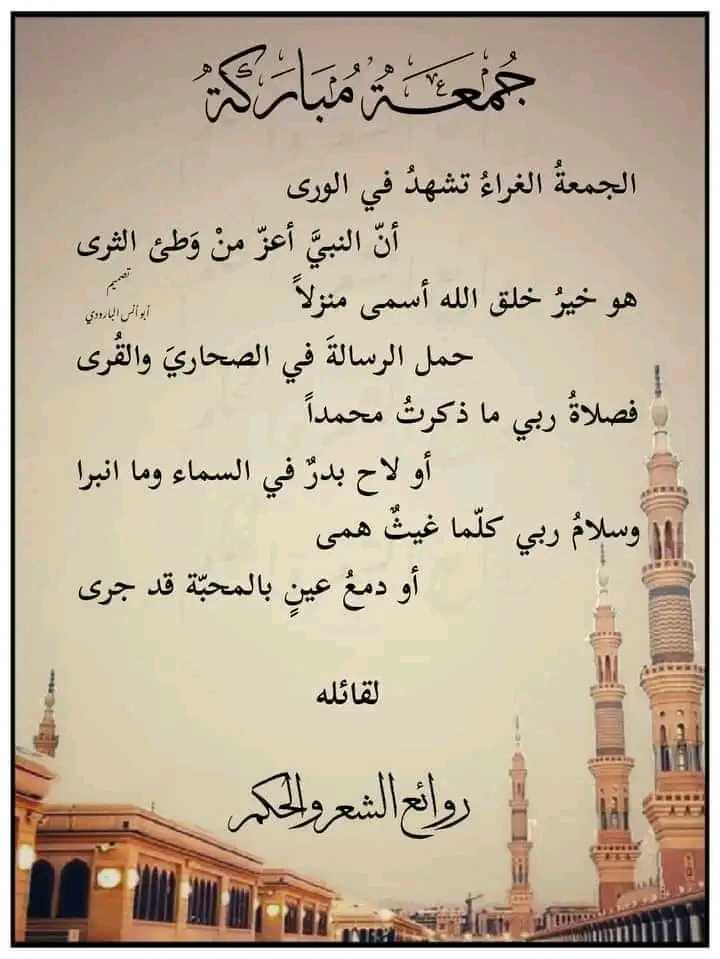 جُمعَةٌ مُبَارَكَةٌ
الجمعةُ الغراءُ تشهدُ في الورى
أنّ النبيَّ أعزّ منْ وَطئ الثرى
تصميم
أبو أنس البارودي
هو خيرُ خلق الله أسمى منزلاً
حمل الرسالةَ في الصحاريَ والقُرى
فصلاةُ ربي ما ذكرتُ محمداً
أو لاح بدرٌ في السماء وما انبرا
وسلامُ ربي كلّما غيثٌ همى
أو دمعُ عينٍ بالمحبّة قد جرى
لقائله
روائع الشعر والحكم